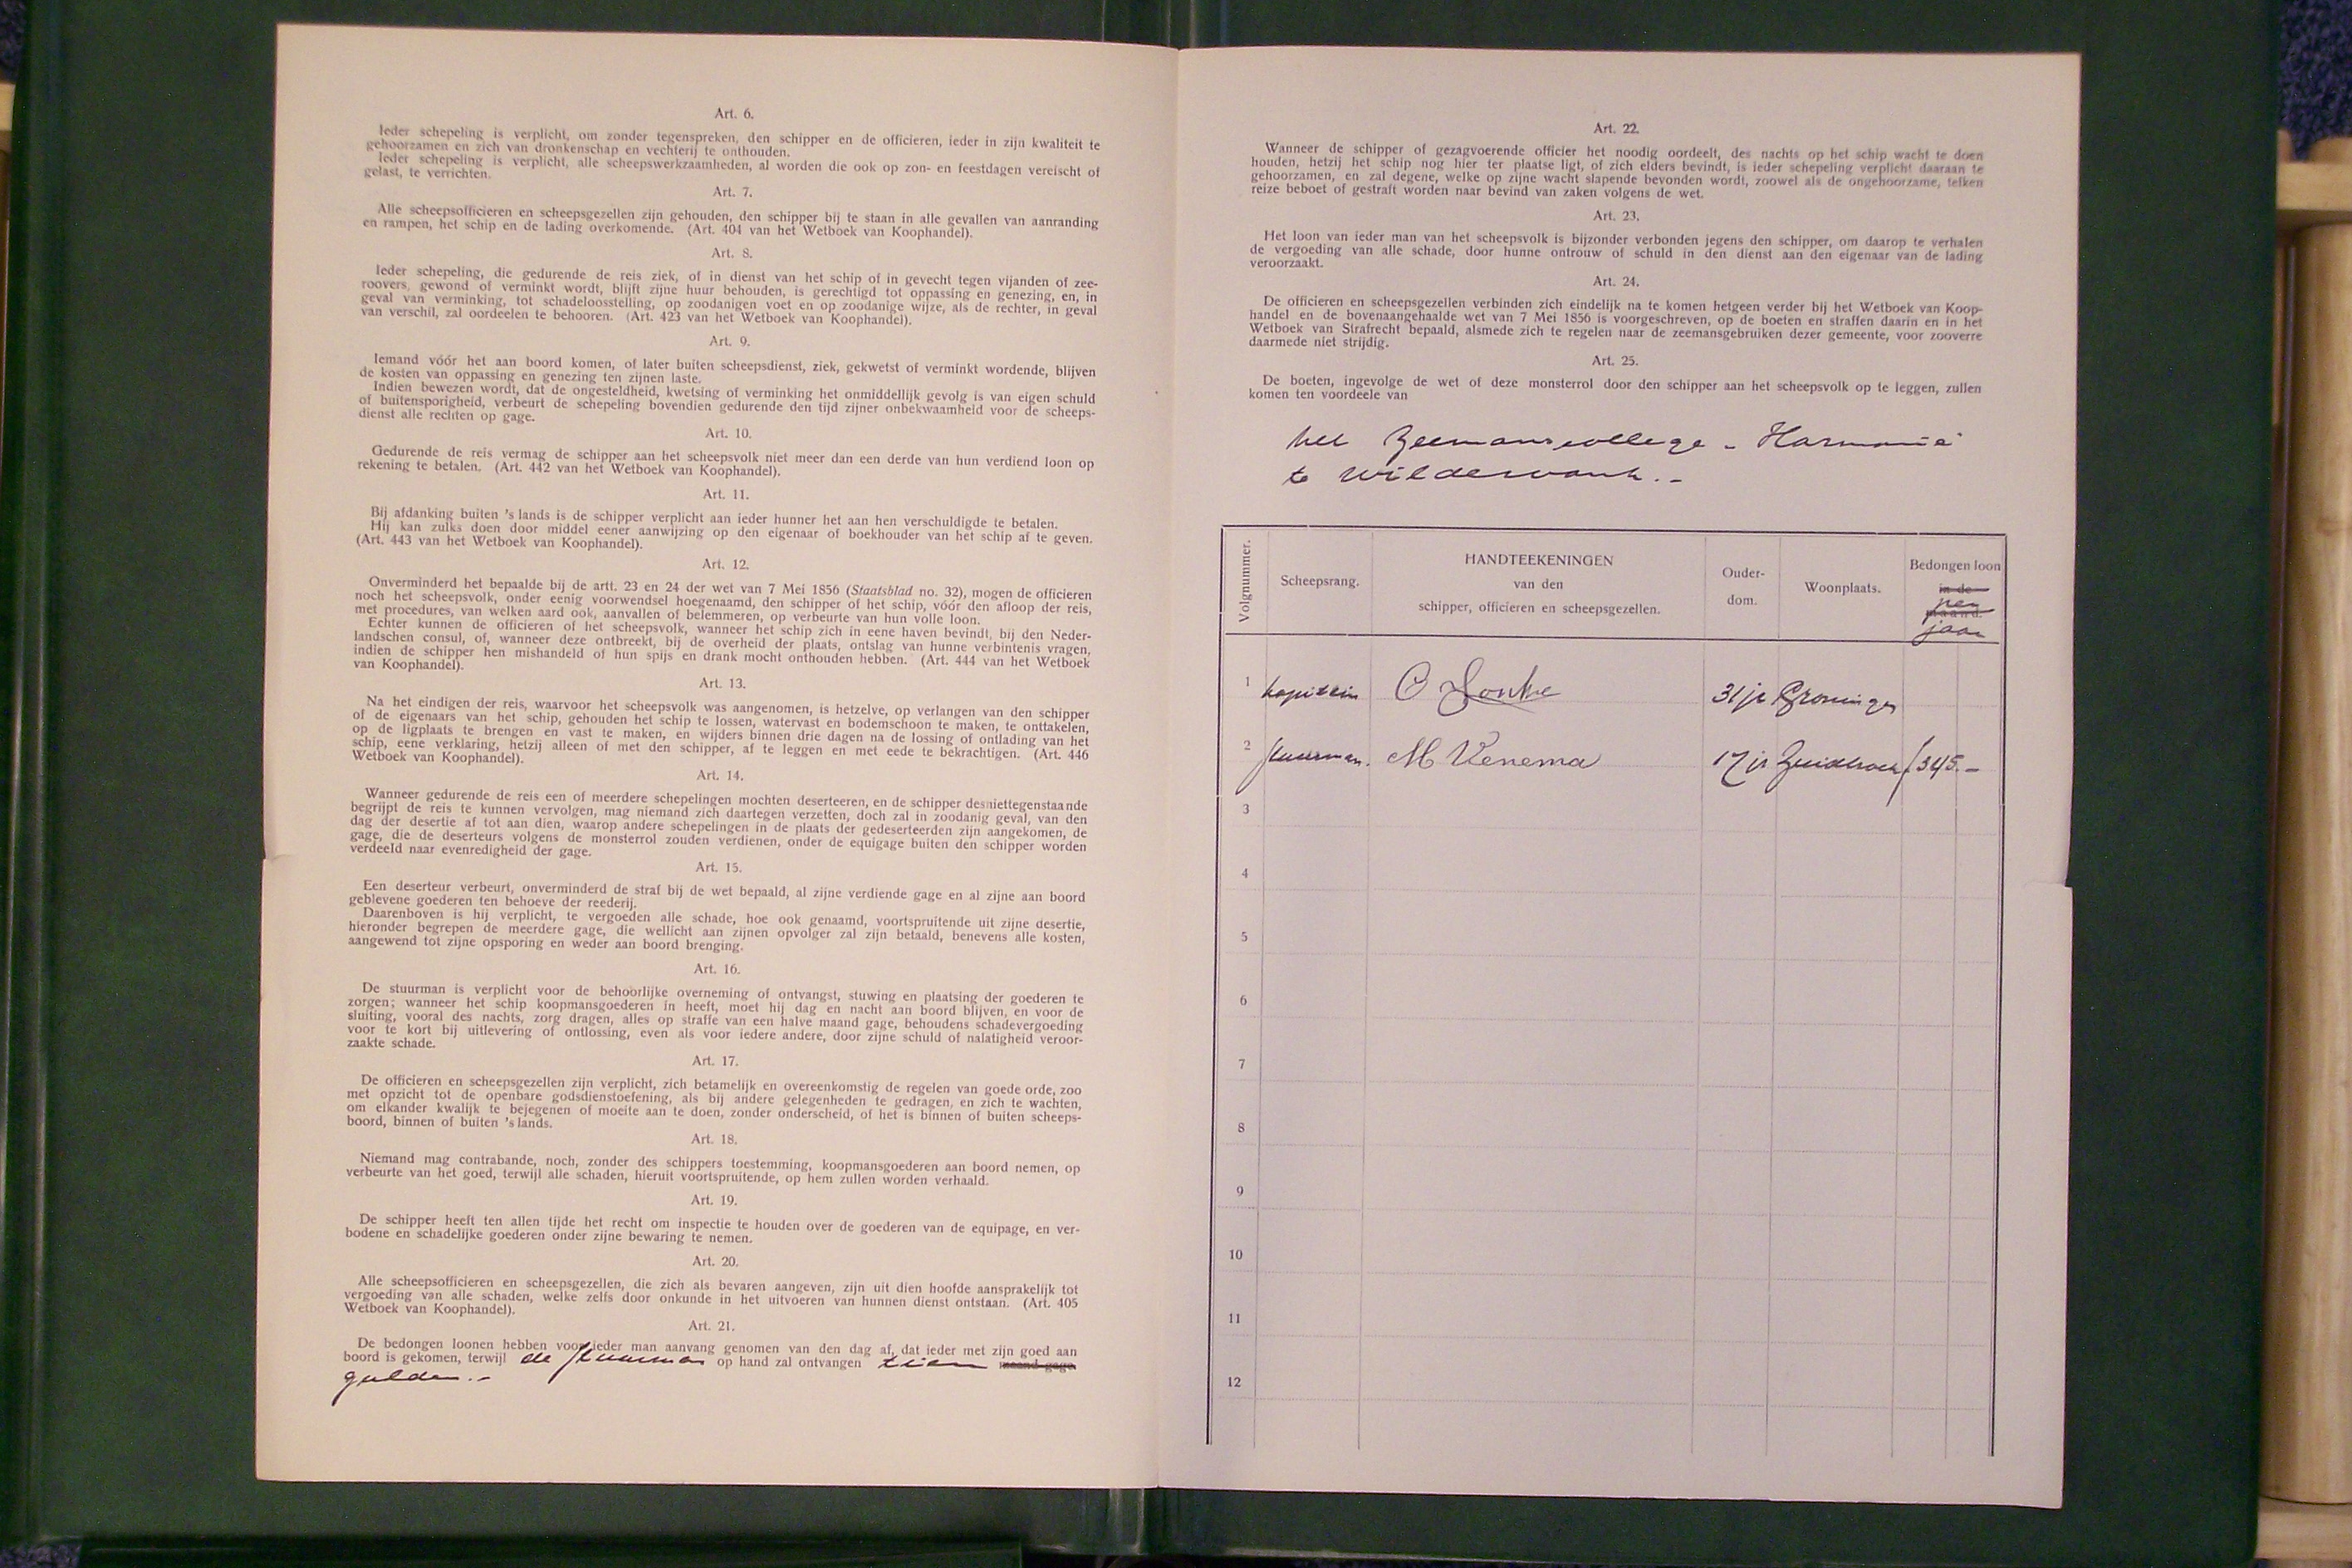 Art. 6.
Ieder schepeling is verplicht, om zonder tegenspreken, den schipper en de officieren, ieder in zijn kwaliteit te
gehoorzamen en zich van dronkenschap en vechterij te onthouden.
Ieder schepeling is verplicht, alle scheepswerkzaamheden, al worden die ook op zon- en feestdagen vereischt of
gelast, te verrichten.
Art. 7.
Alle scheepsofficieren en scheepsgezellen zijn gehouden, den schipper bij te staan in alle gevallen van aanranding
en rampen, het schip en de lading overkomende. (Art. 404 van het Wetboek van Koophandel).
Art. 8.
Ieder schepeling, die gedurende de reis ziek, of in dienst van het schip of in gevecht tegen vijanden of zee-
roovers, gewond of verminkt wordt, blijft zijne huur behouden, is gerechtigd tot oppassing en genezing, en, in
geval van verminking, tot schadeloosstelling, op zoodanigen voet en op zoodanige wijze, als de rechter, in geval
van verschil, zal oordeelen te behooren. (Art. 423 van het Wetboek van Koophandel).
Art. 9.
Iemand vóór het aan boord komen, of later buiten scheepsdienst, ziek, gekwetst of verminkt wordende, blijven
de kosten van oppassing en genezing ten zijnen laste.
Indien bewezen wordt, dat de ongesteldheid, kwetsing of verminking het onmiddellijk gevolg is van eigen schuld
of buitensporigheid, verbeurt de schepeling bovendien gedurende den tijd zijner onbekwaamheid voor de scheeps-
dienst alle rechten op gage.
Art. 10.
Gedurende de reis vermag de schipper aan het scheepsvolk niet meer dan een derde van hun verdiend loon op
rekening te betalen. (Art. 442 van het Wetboek van Koophandel).
Art. 11.
Bij afdanking buiten 's lands is de schipper verplicht aan ieder hunner het aan hen verschuldigde te betalen.
Hij kan zulks doen door middel eener aanwijzing op den eigenaar of boekhouder van het schip af te geven.
(Art. 443 van het Wetboek van Koophandel).
Art. 12.
Onverminderd het bepaalde bij de artt. 23 en 24 der wet van 7 Mei 1856 (Staatsblad no. 32), mogen de officieren
noch het scheepsvolk, onder eenig voorwendsel hoegenaamd, den schipper of het schip, vóór den afloop der reis,
met procedures, van welken aard ook, aanvallen of belemmeren, op verbeurte van hun volle loon.
Echter kunnen de officieren of het scheepsvolk, wanneer het schip zich in eene haven bevindt, bij den Neder-
landschen consul, of, wanneer deze ontbreekt, bij de overheid der plaats, ontslag van hunne verbintenis vragen,
indien de schipper hen mishandeld of hun spijs en drank mocht onthouden hebben. (Art. 444 van het Wetboek
van Koophandel).
Art. 13.
Na het eindigen der reis, waarvoor het scheepsvolk was aangenomen, is hetzelve, op verlangen van den schipper
of de eigenaars van het schip, gehouden het schip te lossen, watervast en bodemschoon te maken, te onttakelen,
op de ligplaats te brengen en vast te maken, en wijders binnen drie dagen na de lossing of ontlading van het
schip, eene verklaring, hetzij alleen of met den schipper, af te leggen en met eede te bekrachtigen. (Art. 446
Wetboek van Koophandel).
Art. 14.
Wanneer gedurende de reis een of meerdere schepelingen mochten deserteeren, en de schipper desniettegenstaande
begrijpt de reis te kunnen vervolgen, mag niemand zich daartegen verzetten, doch zal in zoodanig geval, van den
dag der desertie af tot aan dien, waarop andere schepelingen in de plaats der gedeserteerden zijn aangekomen, de
gage, die de deserteurs volgens de monsterrol zouden verdienen, onder de equigage buiten den schipper worden
verdeeld naar evenredigheid der gage.
Art. 15.
Een deserteur verbeurt, onverminderd de straf bij de wet bepaald, al zijne verdiende gage en al zijne aan boord
geblevene goederen ten behoeve der reederij.
Daarenboven is hij verplicht, te vergoeden alle schade, hoe ook genaamd, voortspruitende uit zijne desertie,
hieronder begrepen de meerdere gage, die wellicht aan zijnen opvolger zal zijn betaald, benevens alle kosten,
aangewend tot zijne opsporing en weder aan boord brenging.
Art. 16.
De stuurman is verplicht voor de behoorlijke overneming of ontvangst, stuwing en plaatsing der goederen te
zorgen; wanneer het schip koopmansgoederen in heeft, moet hij dag en nacht aan boord blijven, en voor de
sluiting, vooral des nachts, zorg dragen, alles op straffe van een halve maand gage, behoudens schadevergoeding
voor te kort bij uitlevering of ontlossing, even als voor iedere andere, door zijne schuld of nalatigheid veroor-
zaakte schade.
Art. 17.
De officieren en scheepsgezellen zijn verplicht, zich betamelijk en overeenkomstig de regelen van goede orde, zoo
met opzicht tot de openbare godsdienstoefening, als bij andere gelegenheden te gedragen, en zich te wachten,
om elkander kwalijk te bejegenen of moeite aan te doen, zonder onderscheid, of het is binnen of buiten scheeps-
boord, binnen of buiten 's lands.
Art. 18.
Niemand mag contrabande, noch, zonder des schippers toestemming, koopmansgoederen aan boord nemen, op
verbeurte van het goed, terwijl alle schaden, hieruit voortspruitende, op hem zullen worden verhaald.
Art. 19.
De schipper heeft ten allen tijde het recht om inspectie te houden over de goederen van de equipage, en ver-
bodene en schadelijke goederen onder zijne bewaring te nemen.
Art. 20.
Alle scheepsofficieren en scheepsgezellen, die zich als bevaren aangeven, zijn uit dien hoofde aansprakelijk tot
vergoeding van alle schaden, welke zelfs door onkunde in het uitvoeren van hunnen dienst ontstaan. (Art. 405
Wetboek van Koophandel).
Art. 21.
De bedongen loonen hebben voor ieder man aanvang genomen van den dag af, dat ieder met zijn goed aan
boord is gekomen, terwijl de stuurman op hand zal ontvangen tien maand gage
gulden.-
Art. 22.
Wanneer de schipper of gezagvoerende officier het noodig oordeelt, des nachts op het schip wacht te doen
houden, hetzij het schip nog hier ter plaatse ligt, of zich elders bevindt, is ieder schepeling verplicht daaraan te
gehoorzamen, en zal degene, welke op zijne wacht slapende bevonden wordt, zoowel als de ongehoorzame, telken
reize beboet of gestraft worden naar bevind van zaken volgens de wet.
Art. 23.
Het loon van ieder man van het scheepsvolk is bijzonder verbonden jegens den schipper, om daarop te verhalen
de vergoeding van alle schade, door hunne ontrouw of schuld in den dienst aan den eigenaar van de lading
veroorzaakt.
Art. 24.
De officieren en scheepsgezellen verbinden zich eindelijk na te komen hetgeen verder bij het Wetboek van Koop-
handel en de bovenaangehaalde wet van 7 Mei 1856 is voorgeschreven, op de boeten en straffen daarin en in het
Wetboek van Strafrecht bepaald, alsmede zich te regelen naar de zeemansgebruiken dezer gemeente, voor zooverre
daarmede niet strijdig.
Art. 25.
De boeten, ingevolge de wet of deze monsterrol door den schipper aan het scheepsvolk op te leggen, zullen
komen ten voordeele van
het Zeemanscollege - Harmonie
te Wildervank.-
Volgnummer. Scheepsrang. HANDTEEKENINGEN van den schipper, officieren en scheepsgezellen. Ouder-dom. Woonplaats. Bedongen loon in de maand. per jaar
1 kapitein 31 jr Groningen
2 stuurman. M Venema 17 jr Zuidbroek f 345.-
3
4
5
6
7
8
9
10
11
12